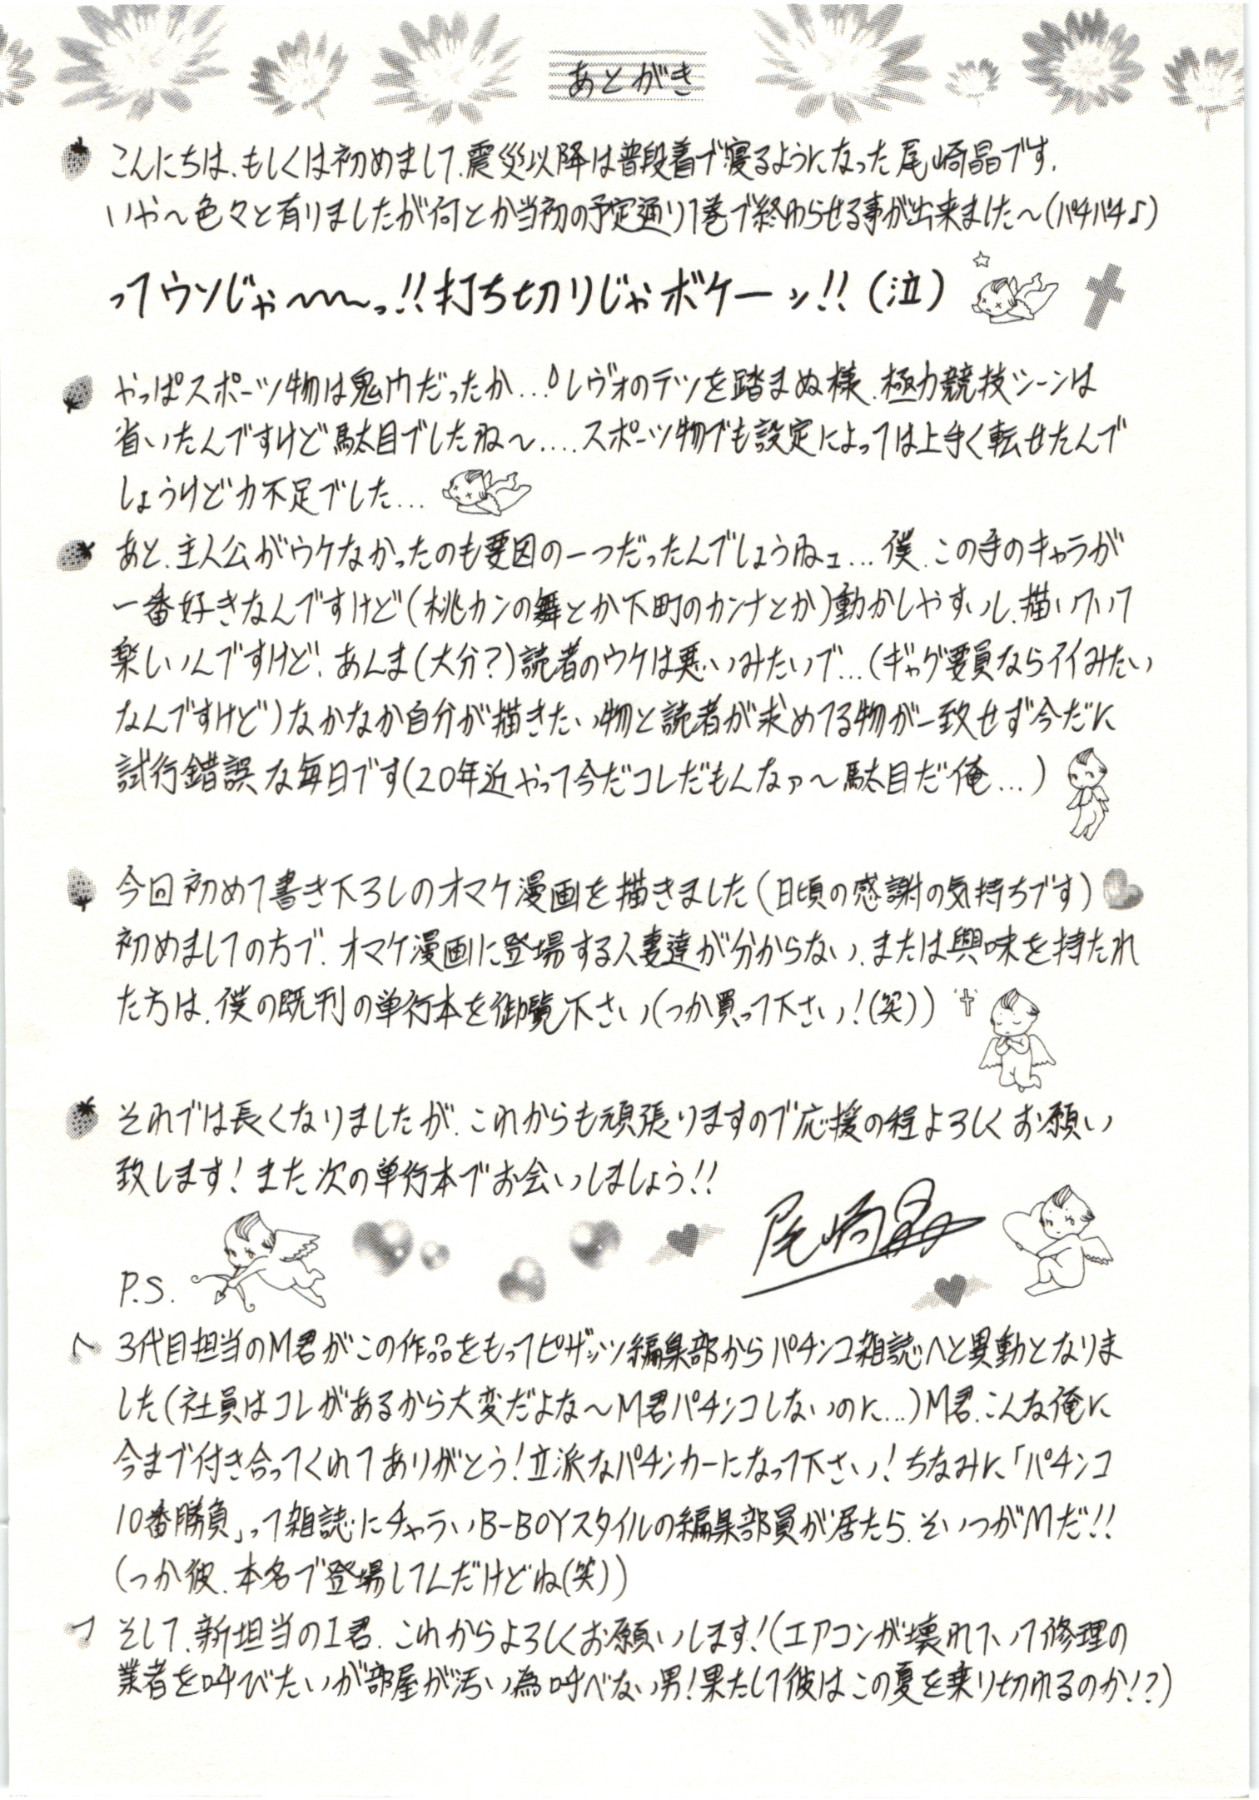 あとがき
こんにちは、もしくは初めまして、震災以降は普段着で寝るようになった尾崎晶です、
いや〜色々と有りましたが何とか当初の予定通り1巻で終わらせる事が出来ました〜(パチパチ♪)
ってウソじゃ〜〜〜っ!!打ち切りじゃボケーッ!!(泣)
やっぱスポーツ物は鬼門だったか…レヴォのテツを踏まぬ様、極力競技シーンは
省いたんですけど駄目でしたね〜....スポーツ物でも設定によっては上手く転せたんで
しょうけど力不足でした...
あと、主人公がウケなかったのも要因の一つだったんでしょうねェ...僕、この手のキャラが
一番好きなんですけど(桃カンの舞とか下町のカンナとか)動かしやすいし、描いてて
楽しいんですけど、あんま(大分?)読者のウケは悪いみたいで...(ギャグ要員ならイイみたい
なんですけど)なかなか自分が描きたい物と読者が求めてる物が一致せず今だに
試行錯誤な毎日です(20年近やって今だコレだもんなァ〜駄目だ俺...)
今回初めて書き下ろしのオマケ漫画を描きました(日頃の感謝の気持ちです)
初めましての方で、オマケ漫画に登場する人妻達が分からない、または興味を持たれ
た方は、僕の既刊の単行本を御覧下さい(つか買って下さい!(笑))
それでは長くなりましたが、これからも頑張りますので応援の程よろしくお願い
致します!また次の単行本でお会いしましょう!!
尾崎晶
P.S.
3代目担当のM君がこの作品をもってピザッツ編集部からパチンコ雑誌へと異動となりま
した(社員はコレがあるから大変だよな〜M君パチンコしないのに...)M君、こんな俺に
今まで付き合ってくれてありがとう!立派なパチンカーになって下さい!ちなみに「パチンコ
10番勝負」って雑誌にチャラいB-BOYスタイルの編集部員が居たら、そいつがMだ!!
(つか彼、本名で登場してんだけどね(笑))
そして、新担当のI君、これからよろしくお願いします!(エアコンが壊れていて修理の
業者を呼びたいが部屋が汚い為呼べない男!果たして彼はこの夏を乗り切れるのか!?)